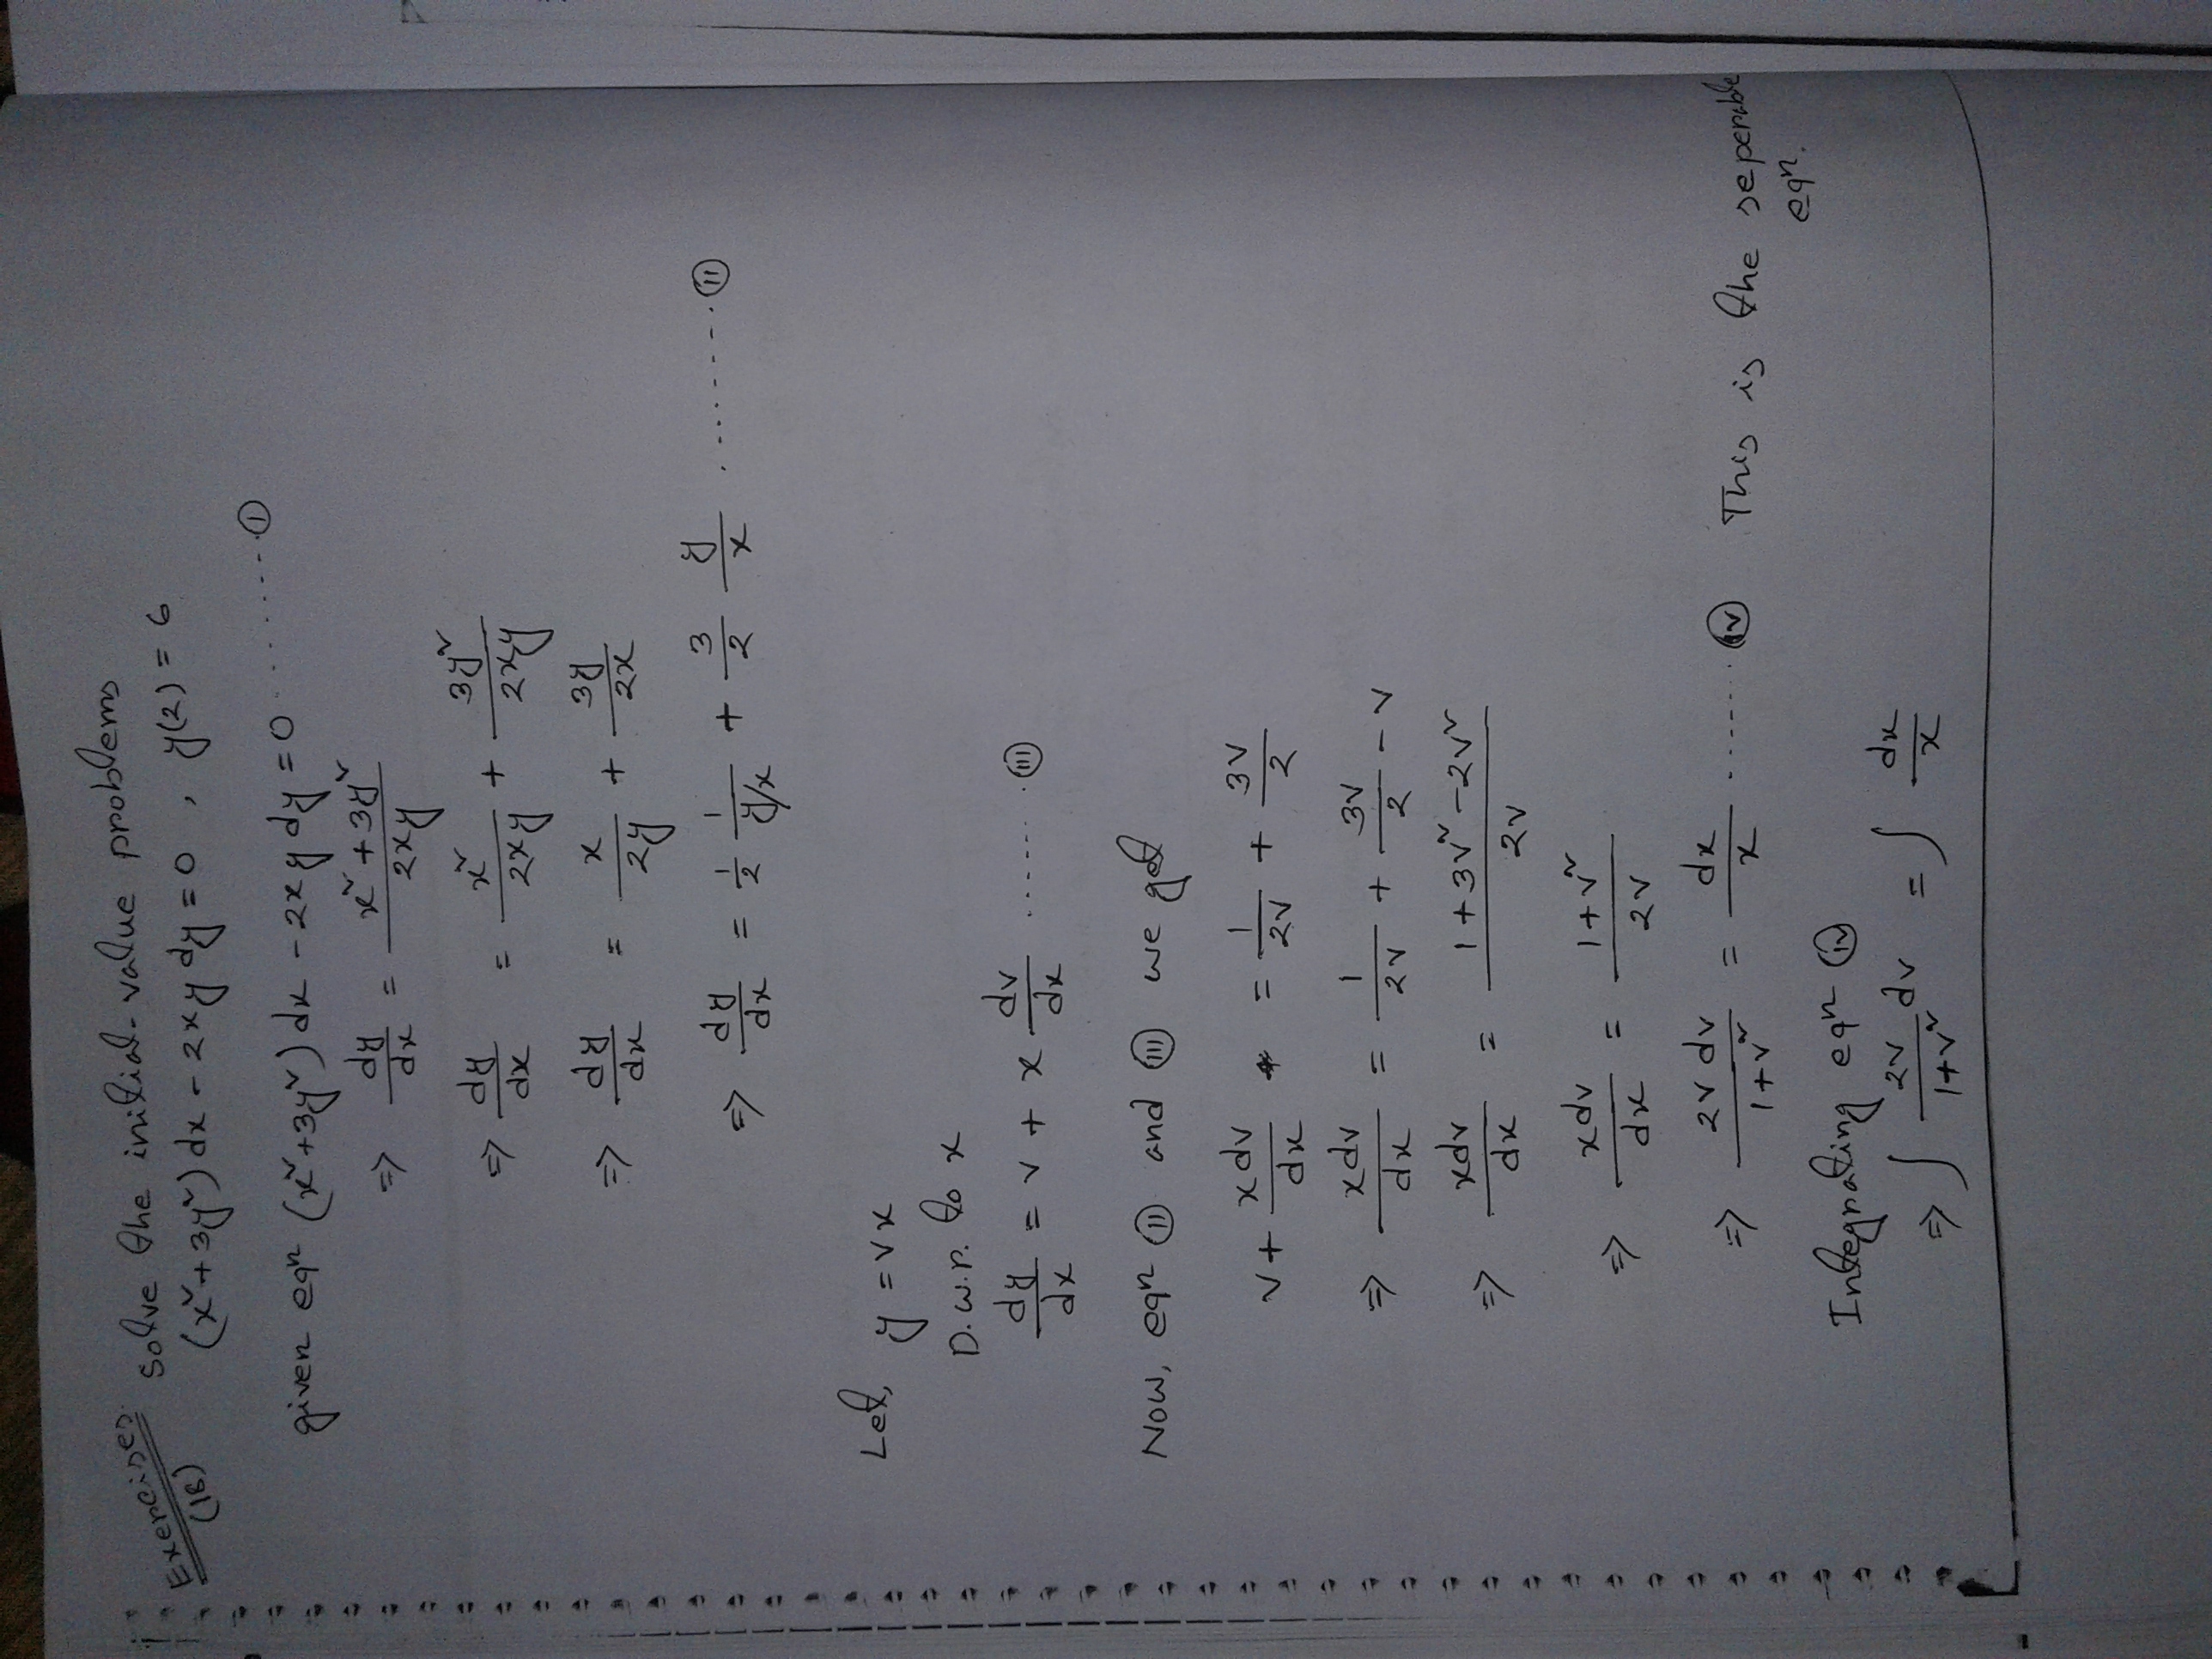 Exercises. Solve the initial-value problems
(18) (x²+3y²) dx - 2xy dy = 0 , y(2) = 6
given eqⁿ (x²+3y²) dx - 2xy dy = 0 ........ (I)
=> dy/dx = (x²+3y²)/(2xy)
=> dy/dx = x²/(2xy) + 3y²/(2xy)
=> dy/dx = x/(2y) + 3y/(2x)
=> dy/dx = 1/2 1/(y/x) + 3/2 y/x ........ (II)
Let, y = vx
D.w.r. to x
dy/dx = v + x dv/dx ....... (III)
Now, eqⁿ (II) and (III) we get
v + xdv/dx = 1/(2v) + 3v/2
=> xdv/dx = 1/(2v) + 3v/2 - v
=> xdv/dx = (1+3v²-2v²)/(2v)
=> xdv/dx = (1+v²)/(2v)
=> 2v dv/(1+v²) = dx/x ....... (iv) This is the seperable
eqⁿ.
Integrating eqⁿ (iv)
=> ∫ 2v/(1+v²) dv = ∫ dx/x